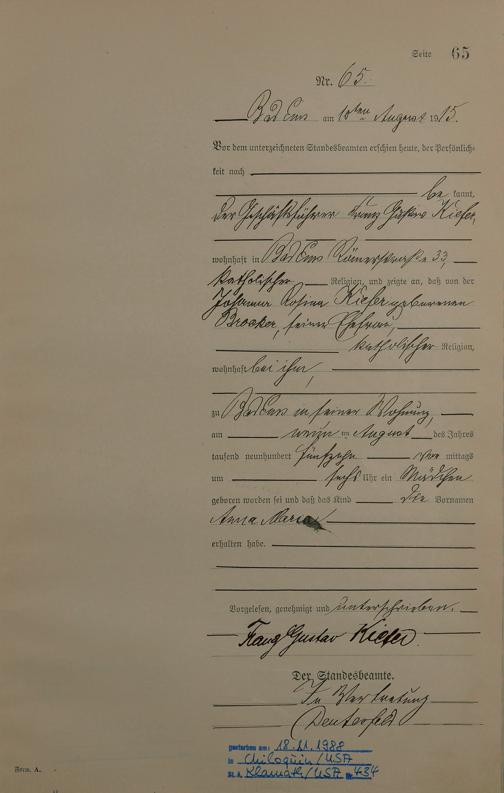 Seite 65
Nr. 65.
Bad Ems am 10ten August 1915.
Vor dem unterzeichneten Standesbeamten erschien heute, der Persönlich-
keit nach
be kannt,
der Geschäftsführer Franz Gustav Kiefer,
wohnhaft in Bad Ems Römerstraße 33,
katholischer Religion, und zeigte an, daß von der
Johanna Rosina Kiefer geborenen
Brocker, seiner Ehefrau,
katholischer Religion,
wohnhaft bei ihm,
zu Bad Ems in seiner Wohnung,
am August des Jahres
tausend neunhundert fünfzehn vor mittags
um sechs Uhr ein Mädchen
geboren worden sei und daß das Kind die Vornamen
Anna Maria
erhalten habe.
Vorgelesen, genehmigt und unterschrieben.
Franz Gustav Kiefer.
Der Standesbeamte.
In Vertretung
gestorben am: 18.11.1988
in Chiloquin/USA
St. A. Klamath/USA Nr. 434
Form. A.